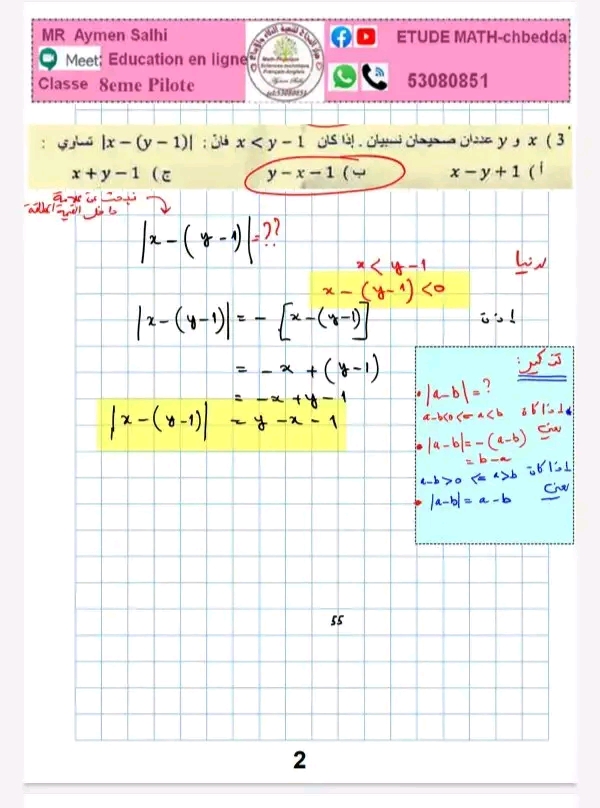 MR Aymen Salhi
Meet: Education en ligne
Classe 8eme Pilote
ETUDE MATH-chbedda
53080851
3 ) x و y عددان صحيحان نسبيان . إذا كان x < y − 1 فإنّ : |x − (y − 1)| تساوي :
أ ) x − y + 1
ب ) y − x − 1
ج ) x + y − 1
نبحث عن علامة
داخل القيمة المطلقة
|x − (y − 1)| = ??
لدينا
x < y − 1
x − (y − 1) < 0
إذن
|x − (y − 1)| = − [x − (y − 1)]
= − x + (y − 1)
= − x + y − 1
|x − (y − 1)| = y − x − 1
تذكير:
• |a−b| = ?
إذا كان a<b => a−b<0
يعني
• |a−b| = −(a−b)
= b − a
إذا كان a>b => a−b>0
يعني
• |a−b| = a − b
55
2